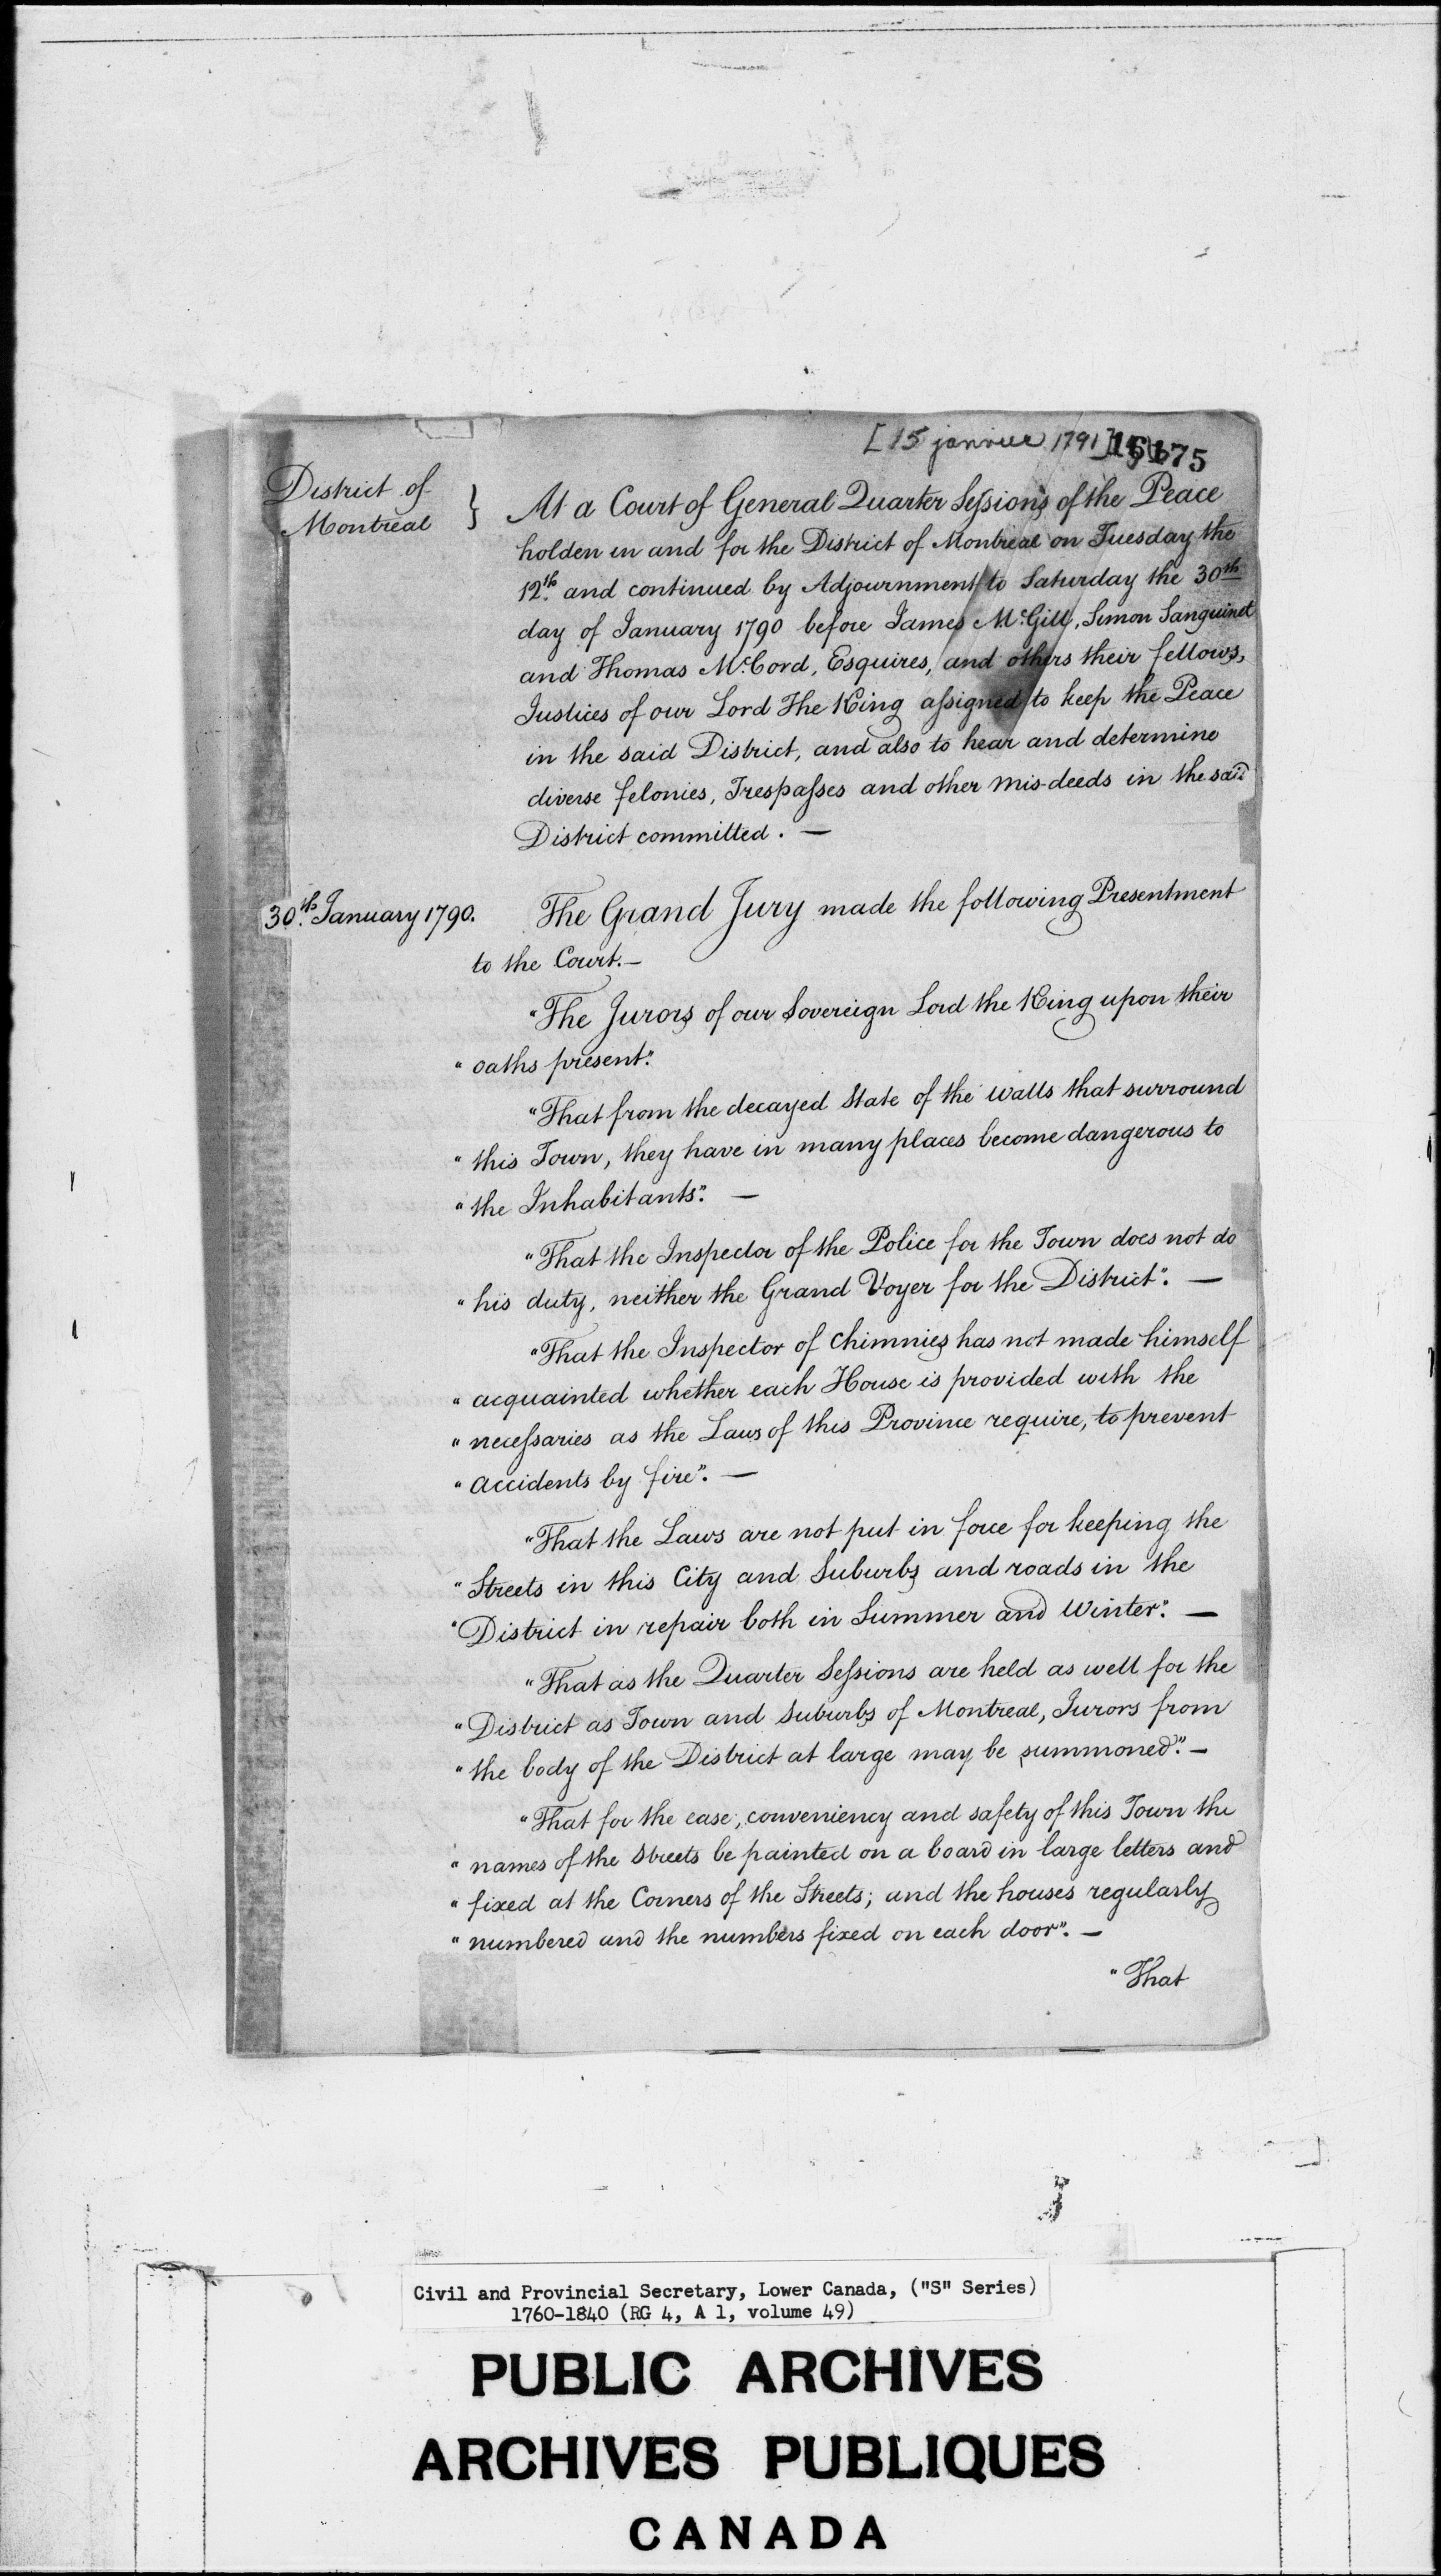 [15 janvier 1791]
16175
District of
Montreal }
At a Court of General Quarter Sessions of the Peace
holden in and for the District of Montreal on Tuesday the
12th and continued by Adjournment to Saturday the 30th
day of January 1790 before James McGill, Simon Sanguinet
and Thomas McCord, Esquires, and others their fellows,
Justices of our Lord The King assigned to keep the Peace
in the said District, and also to hear and determine
diverse felonies, Trespasses and other mis-deeds in the said
District committed. —
30th January 1790.
The Grand Jury made the following Presentment
to the Court.—
"The Jurors of our Sovereign Lord the King upon their
" oaths present."
"That from the decayed State of the walls that surround
" this Town, they have in many places become dangerous to
" the Inhabitants". —
"That the Inspector of the Police for the Town does not do
" his duty, neither the Grand Voyer for the District". —
"That the Inspector of Chimnies has not made himself
" acquainted whether each House is provided with the
" necessaries as the Laws of this Province require, to prevent
" accidents by fire". —
"That the Laws are not put in force for keeping the
" Streets in this City and Suburbs and roads in the
" District in repair both in Summer and Winter". —
"That as the Quarter Sessions are held as well for the
" District as Town and Suburbs of Montreal, Jurors from
" the body of the District at large may be summoned". —
"That for the ease, conveniency and safety of this Town the
" names of the Streets be painted on a board in large letters and
" fixed at the Corners of the Streets; and the houses regularly
" numbered and the numbers fixed on each door". —
"That
Civil and Provincial Secretary, Lower Canada, ("S" Series)
1760-1840 (RG 4, A 1, volume 49)
PUBLIC ARCHIVES
ARCHIVES PUBLIQUES
CANADA